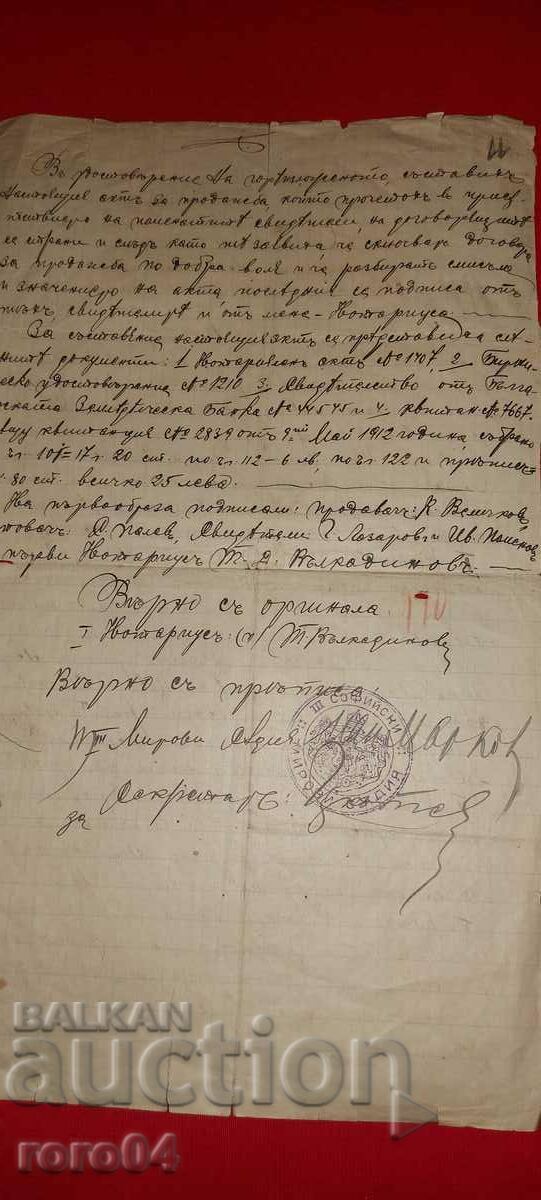 11
Въ удостовѣрение на горѣизложеното, съставихъ
настоящия актъ за продажба, който прочетохъ въ присѫ-
тствието на поискалитѣ свидѣтели, на договорящитѣ
се страни и следъ като тѣ заявиха че сключватъ договора
за продажба по добра воля и че разбиратъ смисъла
и значението на акта последния се подписа отъ
тѣхъ, свидѣтелитѣ и отъ мене - Нотариуса.
За съставяние настоящия актъ се прѣдставиха слѣ-
днитѣ документи: 1 Нотариаленъ актъ № 1407 2 Бирни-
ческо удостовѣрение № 1210 3. Свидѣтелство отъ Бълга-
рската Земледѣлческа Банка № 44545 и 4. квитан № 7667.
квитанция № 2839 отъ 9ий Май 1912 година, събрано
чл 107=17 л 20 ст. по чл 112 - 6 лв, по чл 122 и прѣпис
80 ст. всичко 25 лева.
На първообраза подписали: продавачъ: К. Величковъ,
Палев, Свидѣтели Г. Лазаров и Ив.
първи Нотариусъ Т. А. Вълкадиновъ.
Вѣрно съ оригинала. 170
I Нотариусъ: (п) Т Вълкадинов
Вѣрно съ прѣписа
III Мирови Сѫдия: Марков
Секретарь:
за
III СОФИЙСКИ
МИРОВИ СѪДИЯ
BALKAN
auction
roro04